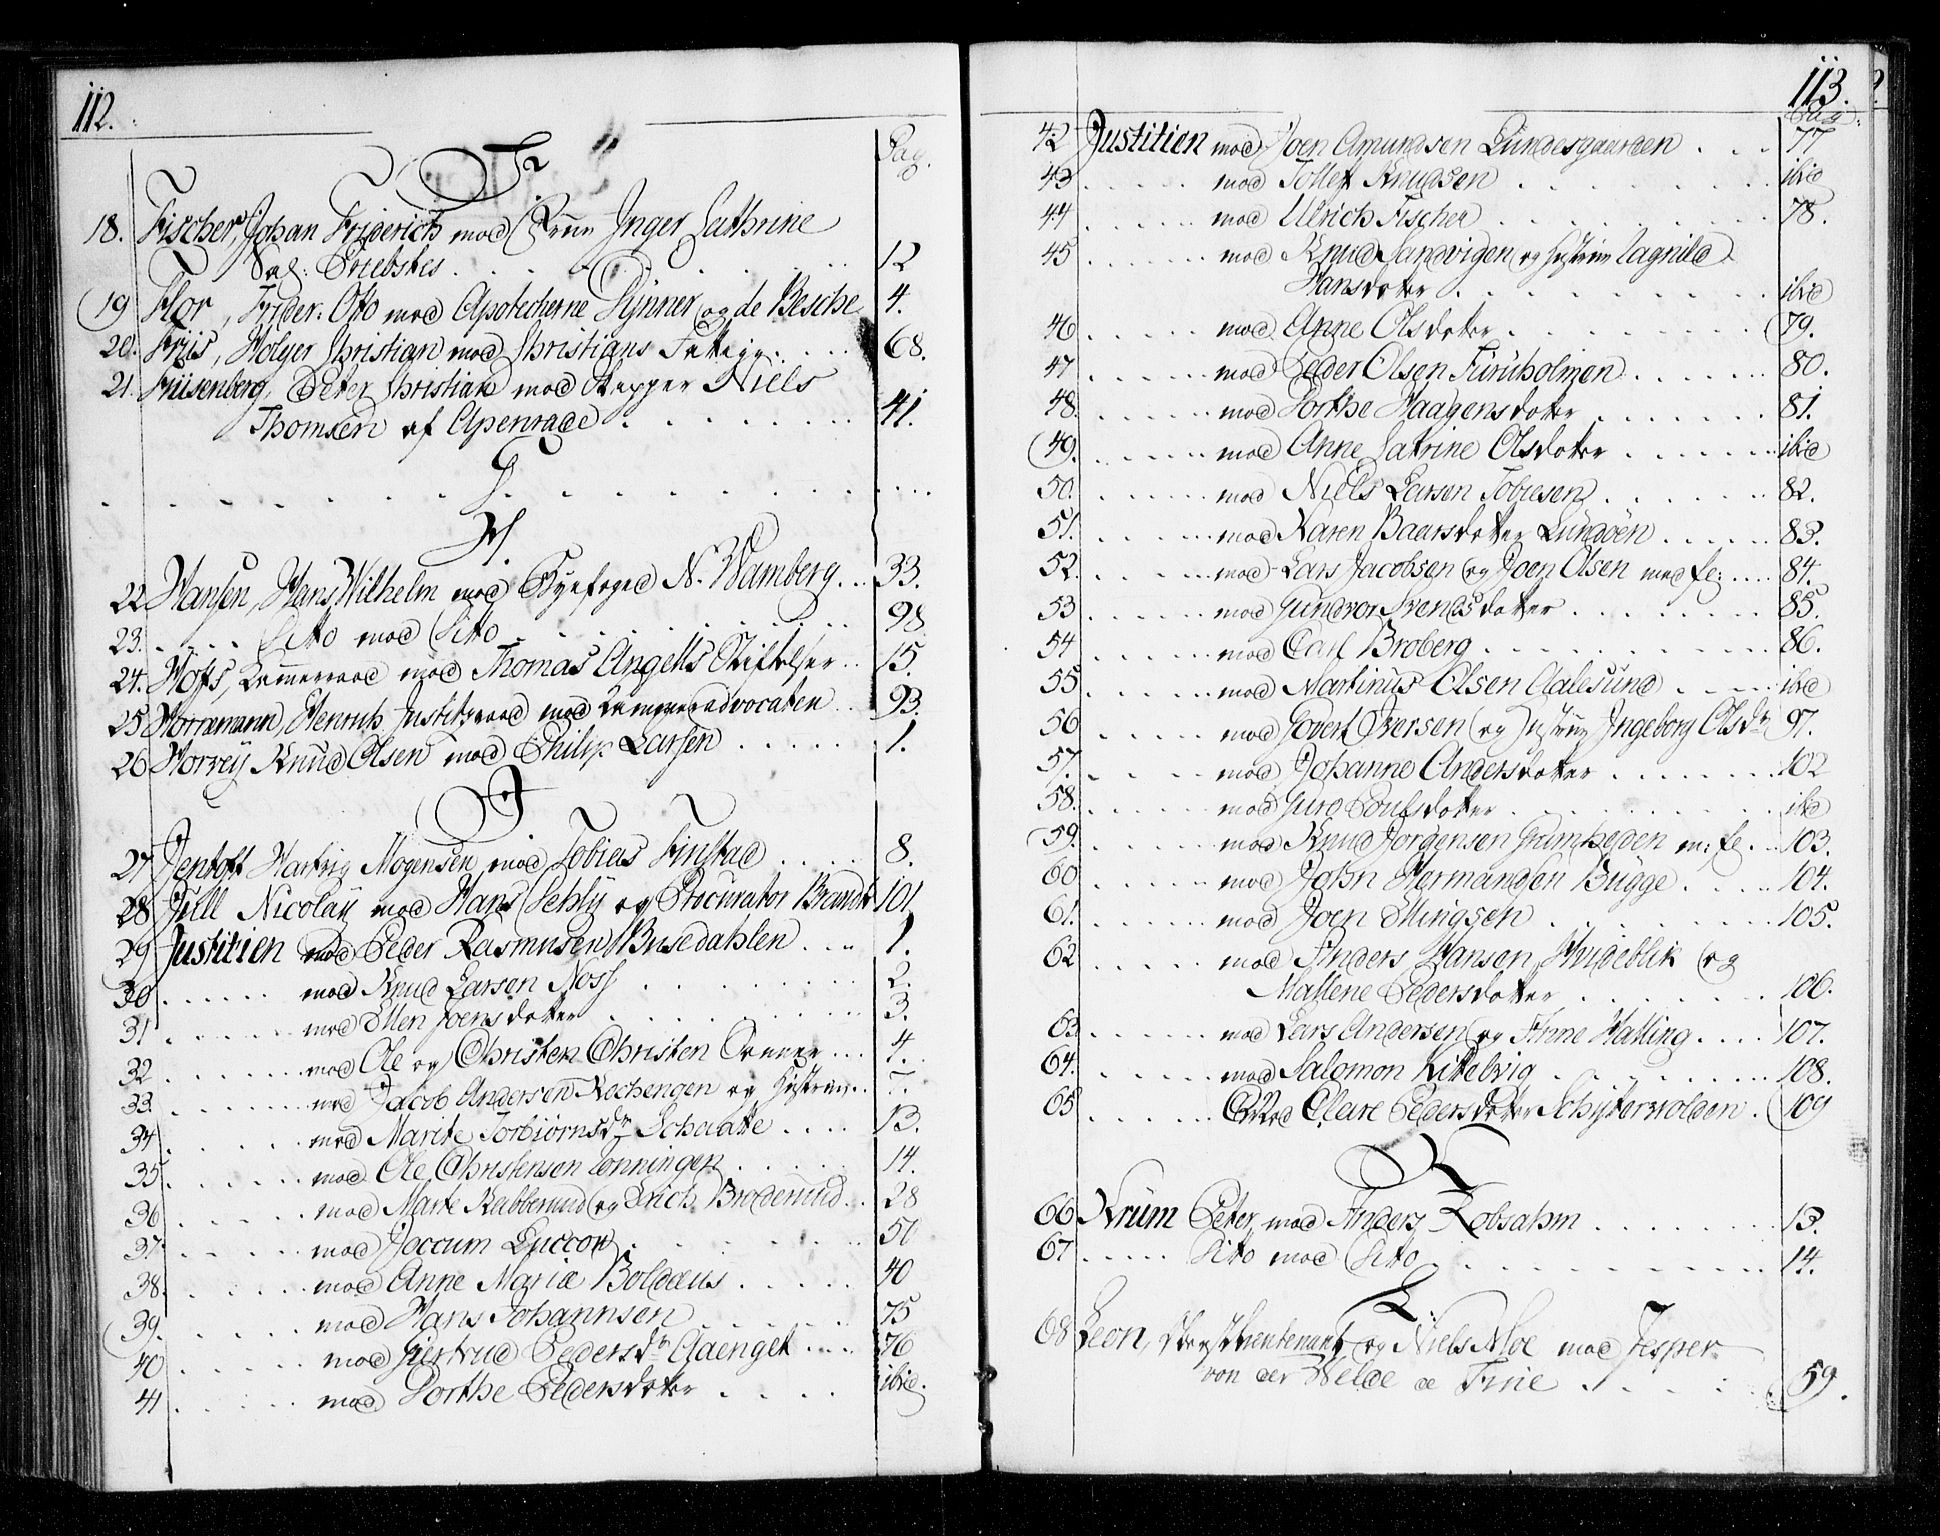 112.
F.
Pag.
18. Fischer, Johan Friderich mod Fruu Inger Cathrine
Sal: Friebskes 12
19 Flor, Frider: Otto mod Apotecherne Dynner og de Besche 4.
20. Friis, Holger Christian mod Christians 68.
21. Friisenberg, Peter Christian mod Skipper Niels
Thomsen af Apenrade 41.
G.
H.
22 Hansen, Hans Wilhelm mod Byefoged N. Wamberg 33.
23. Dito mod Dito 98
24. Hofs, Cammerraad mod Thomas Angells Stiftelser 15.
25 Horremann, Henrich Justitsraad mod Cammeradvocaten 93.
26 Horrey Knud Olsen mod Philip Larsen 1.
J
27 Jentoft Hartvig Mogensen mod Tobias Finstad 8.
28 Jull Nicolay mod Hans Sehly og Procurator Brandt 101
29 Justitien mod Peder Rasmusen Busedahlen 1.
30 mod Knud Larsen Noss 2.
31 mod Ellen Joensdatter 3.
32 mod Ole og Christen Christen 4.
33. mod Jacob Andersen Kochengen og Hustrue 7.
34 mod Marite Torbiørnsdr Schaatte 13.
35 mod Ole Christensen Tonningen 14.
36 mod Marte Rabberud og Erich Broderud 28
37. mod Joccum Luccow 50
38. mod Anne Maria Boldæus 40
39. mod Hans Johannsen 75
40 mod Giertrud Pedersdr Aaenget 76
41 mod Dorthe Pedersdatter ibid.
113.
Pag.
42 Justitien mod Joen Amundsen Lundesgaarden 77
43 mod Tollef Knudsen ibid
44 mod Ulrich Fischer 78.
45 mod Knud Sandvigen og Hustrue Ragnild
Hansdatter ibid
46 mod Anne Olsdatter 79.
47 mod Peder Olsen Furuholmen 80.
48. mod Dorthe Haagensdatter 81.
49. mod Anne Catrine Olsdatter ibid
50. mod Niels Larsen Tobiesen 82.
51. mod Karen Baarsdatter Lundøen 83.
52. mod Lars Jacobsen og Joen Olsen med fl: 84.
53 mod Gundvor Svendsdatter 85.
54 mod Carl Broberg 86.
55 mod Martinus Olsen Aalesund ibid
56 mod Govert Iversen og Hustrue Ingeborg Olsdr 97.
57. mod Johanne Andersdatter 102
58. mod Guro Poulsdatter ibd
59. mod Knud Jorgensen Grimheden m: fl. 103.
60 mod John Hermandsen Bugge 104.
61. mod Joen Ellingsen 105.
62 mod Anders Hansen Hvideblik og
Mallene Pedersdatter 106.
63 mod Lars Andersen og Anne Halling 107.
64. mod Salomon Kittelvig 108.
65 Mod Clare Pedersdatter Schytterwolden 109
K
66 Krum Peter, mod Anders Robsahm 13.
67 Dito mod Dito 14.
L.
68 Leon, og Niels Moe mod Jesper
von der Welde de Fine 59.